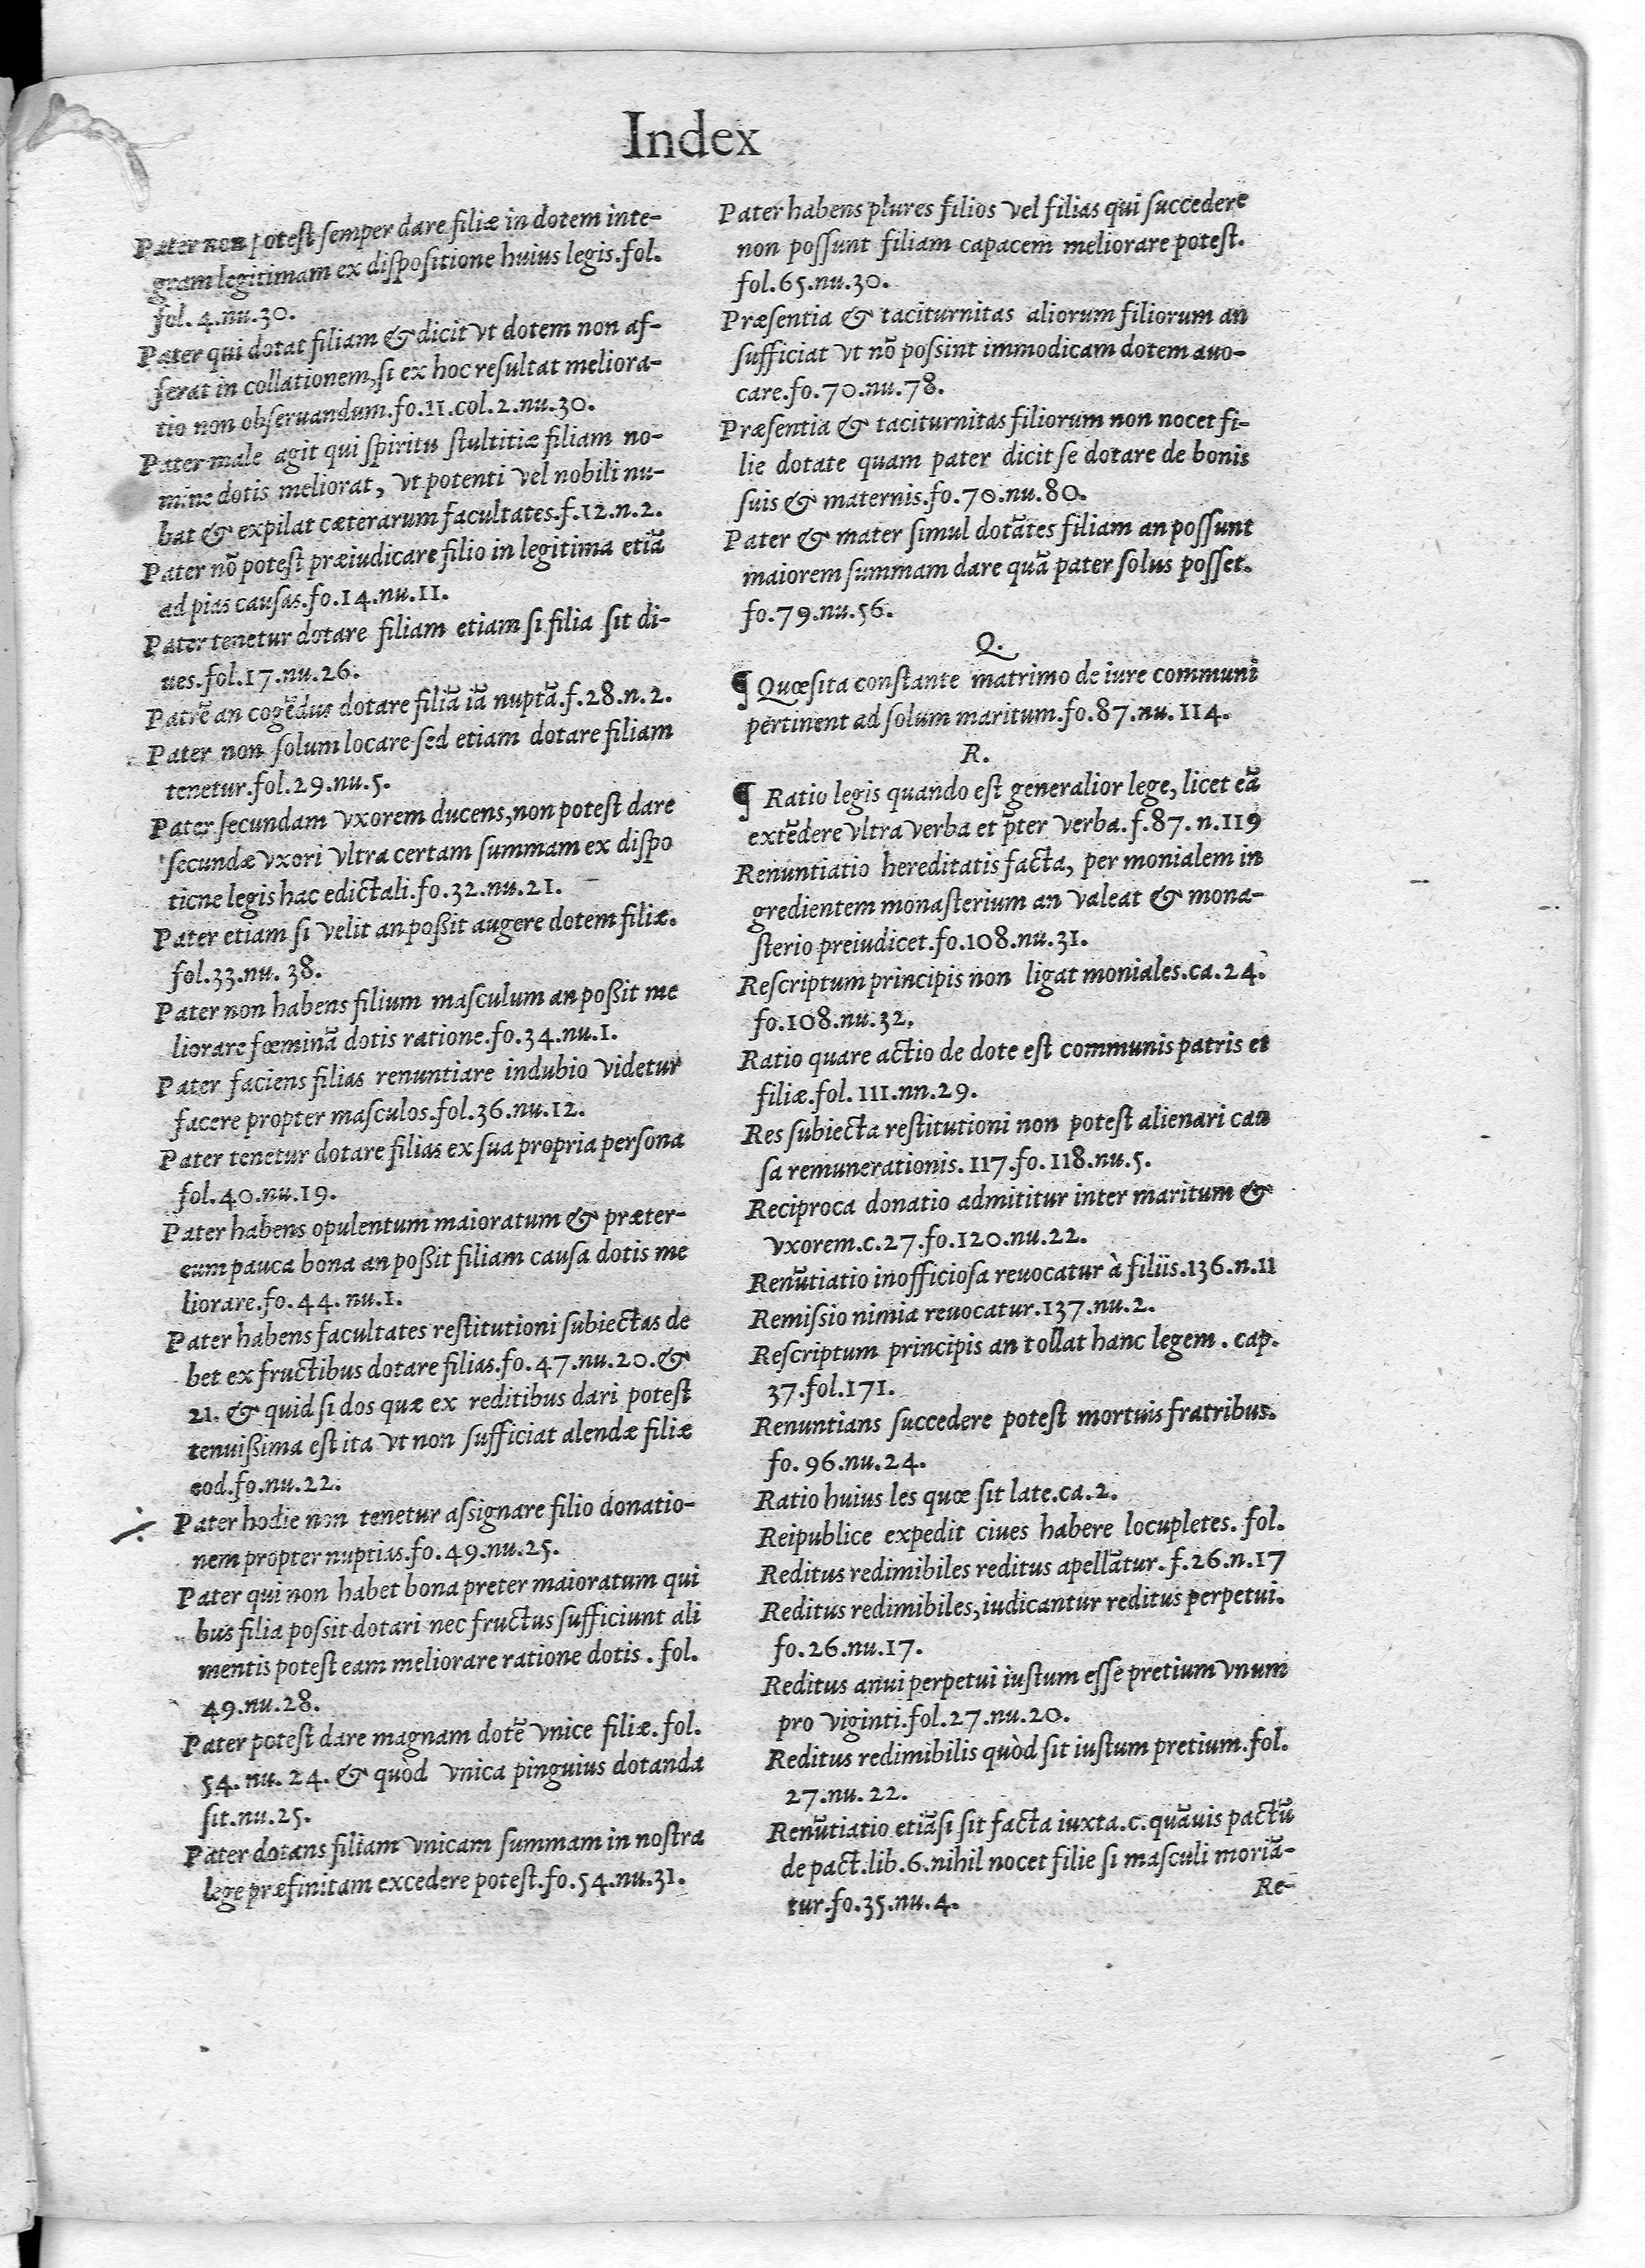 Index
Pater non potest semper dare filiæ in dotem inte-
gram legitimam ex dispositione huius legis.fol.
fol.4.nu.30.
Pater qui dotat filiam & dicit vt dotem non af-
ferat in collationem,si ex hoc resultat meliora-
tio non obseruandum.fo.11.col.2.nu.30.
Pater male agit qui spiritu stultitiæ filiam no-
mine dotis meliorat, vt potenti vel nobili nu-
bat & expilat cæterarum facultates.f.12.n.2.
Pater nõ potest præiudicare filio in legitima etiã
ad pias causas.fo.14.nu.11.
Pater tenetur dotare filiam etiam si filia sit di-
ues.fol.17.nu.26.
Patrẽ an cogẽdus dotare filiã iã nuptã.f.28.n.2.
Pater non solum locare sed etiam dotare filiam
tenetur.fol.29.nu.5.
Pater secundam vxorem ducens,non potest dare
secundæ vxori vltra certam summam ex dispo
ticne legis hac edictali.fo.32.nu.21.
Pater etiam si velit an poßit augere dotem filiæ.
fol.33.nu.38.
Pater non habens filium masculum an poßit me
liorare fœminã dotis ratione.fo.34.nu.1.
Pater faciens filias renuntiare indubio videtur
facere propter masculos.fol.36.nu.12.
Pater tenetur dotare filias ex sua propria persona
fol.40.nu.19.
Pater habens opulentum maioratum & præter-
eum pauca bona an poßit filiam causa dotis me
liorare.fo.44.nu.1.
Pater habens facultates restitutioni subiectas de
bet ex fructibus dotare filias.fo.47.nu.20.&
21. & quid si dos quæ ex reditibus dari potest
tenuißima est ita vt non sufficiat alendæ filiæ
eod.fo.nu.22.
Pater hodie non tenetur assignare filio donatio-
nem propter nuptias.fo.49.nu.25.
Pater qui non habet bona preter maioratum qui
bus filia possit dotari nec fructus sufficiunt ali
mentis potest eam meliorare ratione dotis. fol.
49.nu.28.
Pater potest dare magnam dotẽ vnice filiæ. fol.
54. nu. 24. & quod vnica pinguius dotanda
sit.nu.25.
Pater dotans filiam vnicam summam in nostra
lege præfinitam excedere potest.fo.54.nu.31.
Pater habens plures filios vel filias qui succedere
non possunt filiam capacem meliorare potest.
fol.65.nu.30.
Præsentia & taciturnitas aliorum filiorum an
sufficiat vt nõ possint immodicam dotem auo-
care.fo.70.nu.78.
Præsentia & taciturnitas filiorum non nocet fi-
lie dotate quam pater dicit se dotare de bonis
suis & maternis.fo.70.nu.80.
Pater & mater simul dotãtes filiam an possunt
maiorem summam dare quã pater solus posset.
fo.79.nu.56.
Q.
¶ Quæsita constante matrimo de iure communi
pertinent ad solum maritum.fo.87.nu.114.
R.
¶ Ratio legis quando est generalior lege, licet eã
extẽdere vltra verba et p̃ter verba.f.87.n.119
Renuntiatio hereditatis facta, per monialem in
gredientem monasterium an valeat & mona-
sterio preiudicet.fo.108.nu.31.
Rescriptum principis non ligat moniales.ca.24.
fo.108.nu.32.
Ratio quare actio de dote est communis patris et
filiæ.fol.111.nn.29.
Res subiecta restitutioni non potest alienari cau
sa remunerationis.117.fo.118.nu.5.
Reciproca donatio admititur inter maritum &
vxorem.c.27.fo.120.nu.22.
Renũtiatio inofficiosa reuocatur à filiis.136.n.11
Remissio nimia reuocatur.137.nu.2.
Rescriptum principis an tollat hanc legem. cap.
37.fol.171.
Renuntians succedere potest mortuis fratribus.
fo.96.nu.24.
Ratio huius les quæ sit late.ca.2.
Reipublice expedit ciues habere locupletes. fol.
Reditus redimibiles reditus apellãtur.f.26.n.17
Reditus redimibiles,iudicantur reditus perpetui.
fo.26.nu.17.
Reditus anui perpetui iustum esse pretium vnum
pro viginti.fol.27.nu.20.
Reditus redimibilis quòd sit iustum pretium.fol.
27.nu.22.
Renũtiatio etiãsi sit facta iuxta.c.quãuis pactũ
de pact.lib.6.nihil nocet filie si masculi moriã-
tur.fo.35.nu.4.
Re-